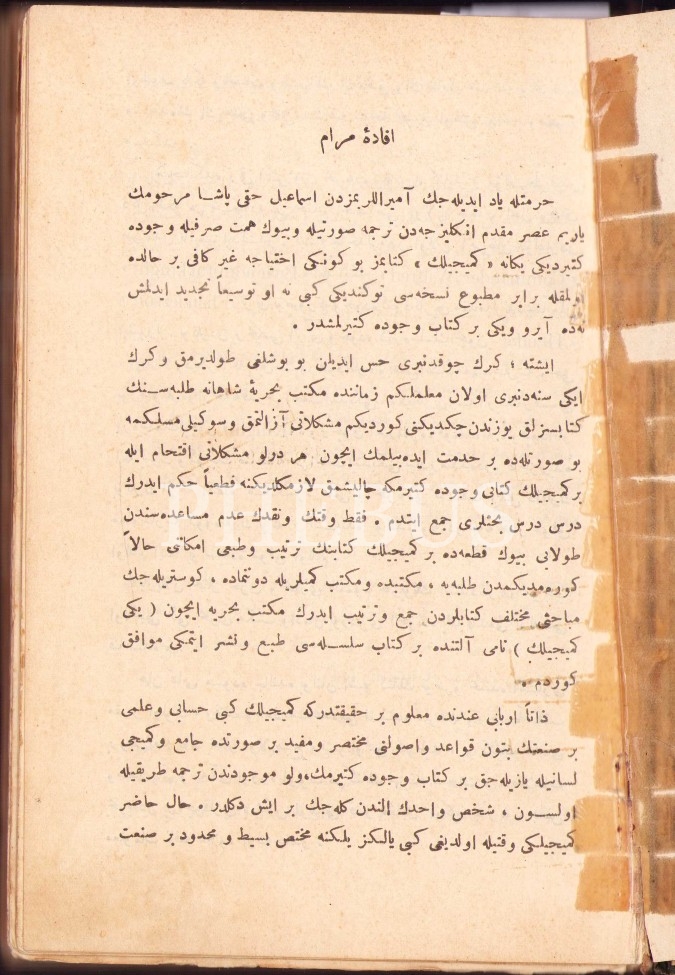 افادۀ مرام
حرمتله یاد ایدیله‌جك آمیراللریمزدن اسماعیل حقی پاشا مرحومك
یاریم عصر مقدم انكلیزجه‌دن ترجمه صورتیله وبیوك همت صرفیله وجوده
كتیردیكی یكانه « كمیجیلك » كتابمز بو كونكی احتیاجه غیر كافی بر حالده
اولمقله برابر مطبوع نسخه‌سی توكندیكی كبی نه او توسیعاً تجدید ایدلمش
نه‌ده آیرو ویكی بر كتاب وجوده كتیرلمشدر .
ایشته ؛ كرك چوقدنبری حس ایدیلن بو بوشلغی طولدیرمق وكرك
ایكی سنه‌دنبری اولان معلملكم زماننده مكتب بحریۀ شاهانه طلبه‌سنك
كتابسزلق یوزندن چكدیكنی كوردیكم مشكلاتی آزالتمق وسوكیلی مسلكمه
بو صورتله‌ده بر خدمت ایده‌بیلمك ایچون هر درلو مشكلاتی اقتحام ایله
بر كمیجیلك كتابی وجوده كتیرمكه چالیشمق لازمكلدیكنه قطعیاً حكم ایدرك
درس درس بحثلری جمع ایتدم . فقط وقتك ونقدك عدم مساعده‌سندن
طولایی بیوك قطعه‌ده بر كمیجیلك كتابنك ترتیب وطبعی امكاننی حالاً
كوره‌مدیكمدن طلبه‌یه ، مكتبده ومكتب كمیلریله دوننماده ، كوستریله‌جك
مباحثی مختلف كتابلردن جمع وترتیب ایدرك مكتب بحریه ایچون ( یكی
كمیجیلك ) نامی آلتنده بر كتاب سلسله‌سی طبع ونشر ایتمكی موافق
كوردم .
ذاتاً اربابی عندنده معلوم بر حقیقتدركه كمیجیلك كبی حسابی وعلمی
بر صنعتك بتون قواعد واصولنی مختصر ومفید بر صورتده جامع وكمیجی
لسانیله یازیله‌جق بر كتاب وجوده كتیرمك، ولو موجودندن ترجمه طریقیله
اولسون ، شخص واحدك الندن كله‌جك بر ایش دكلدر . حال حاضر
كمیجیلكی وقتیله اولدیغی كبی یالكز یلكنه مختص بسیط و محدود بر صنعت
PHEBUS